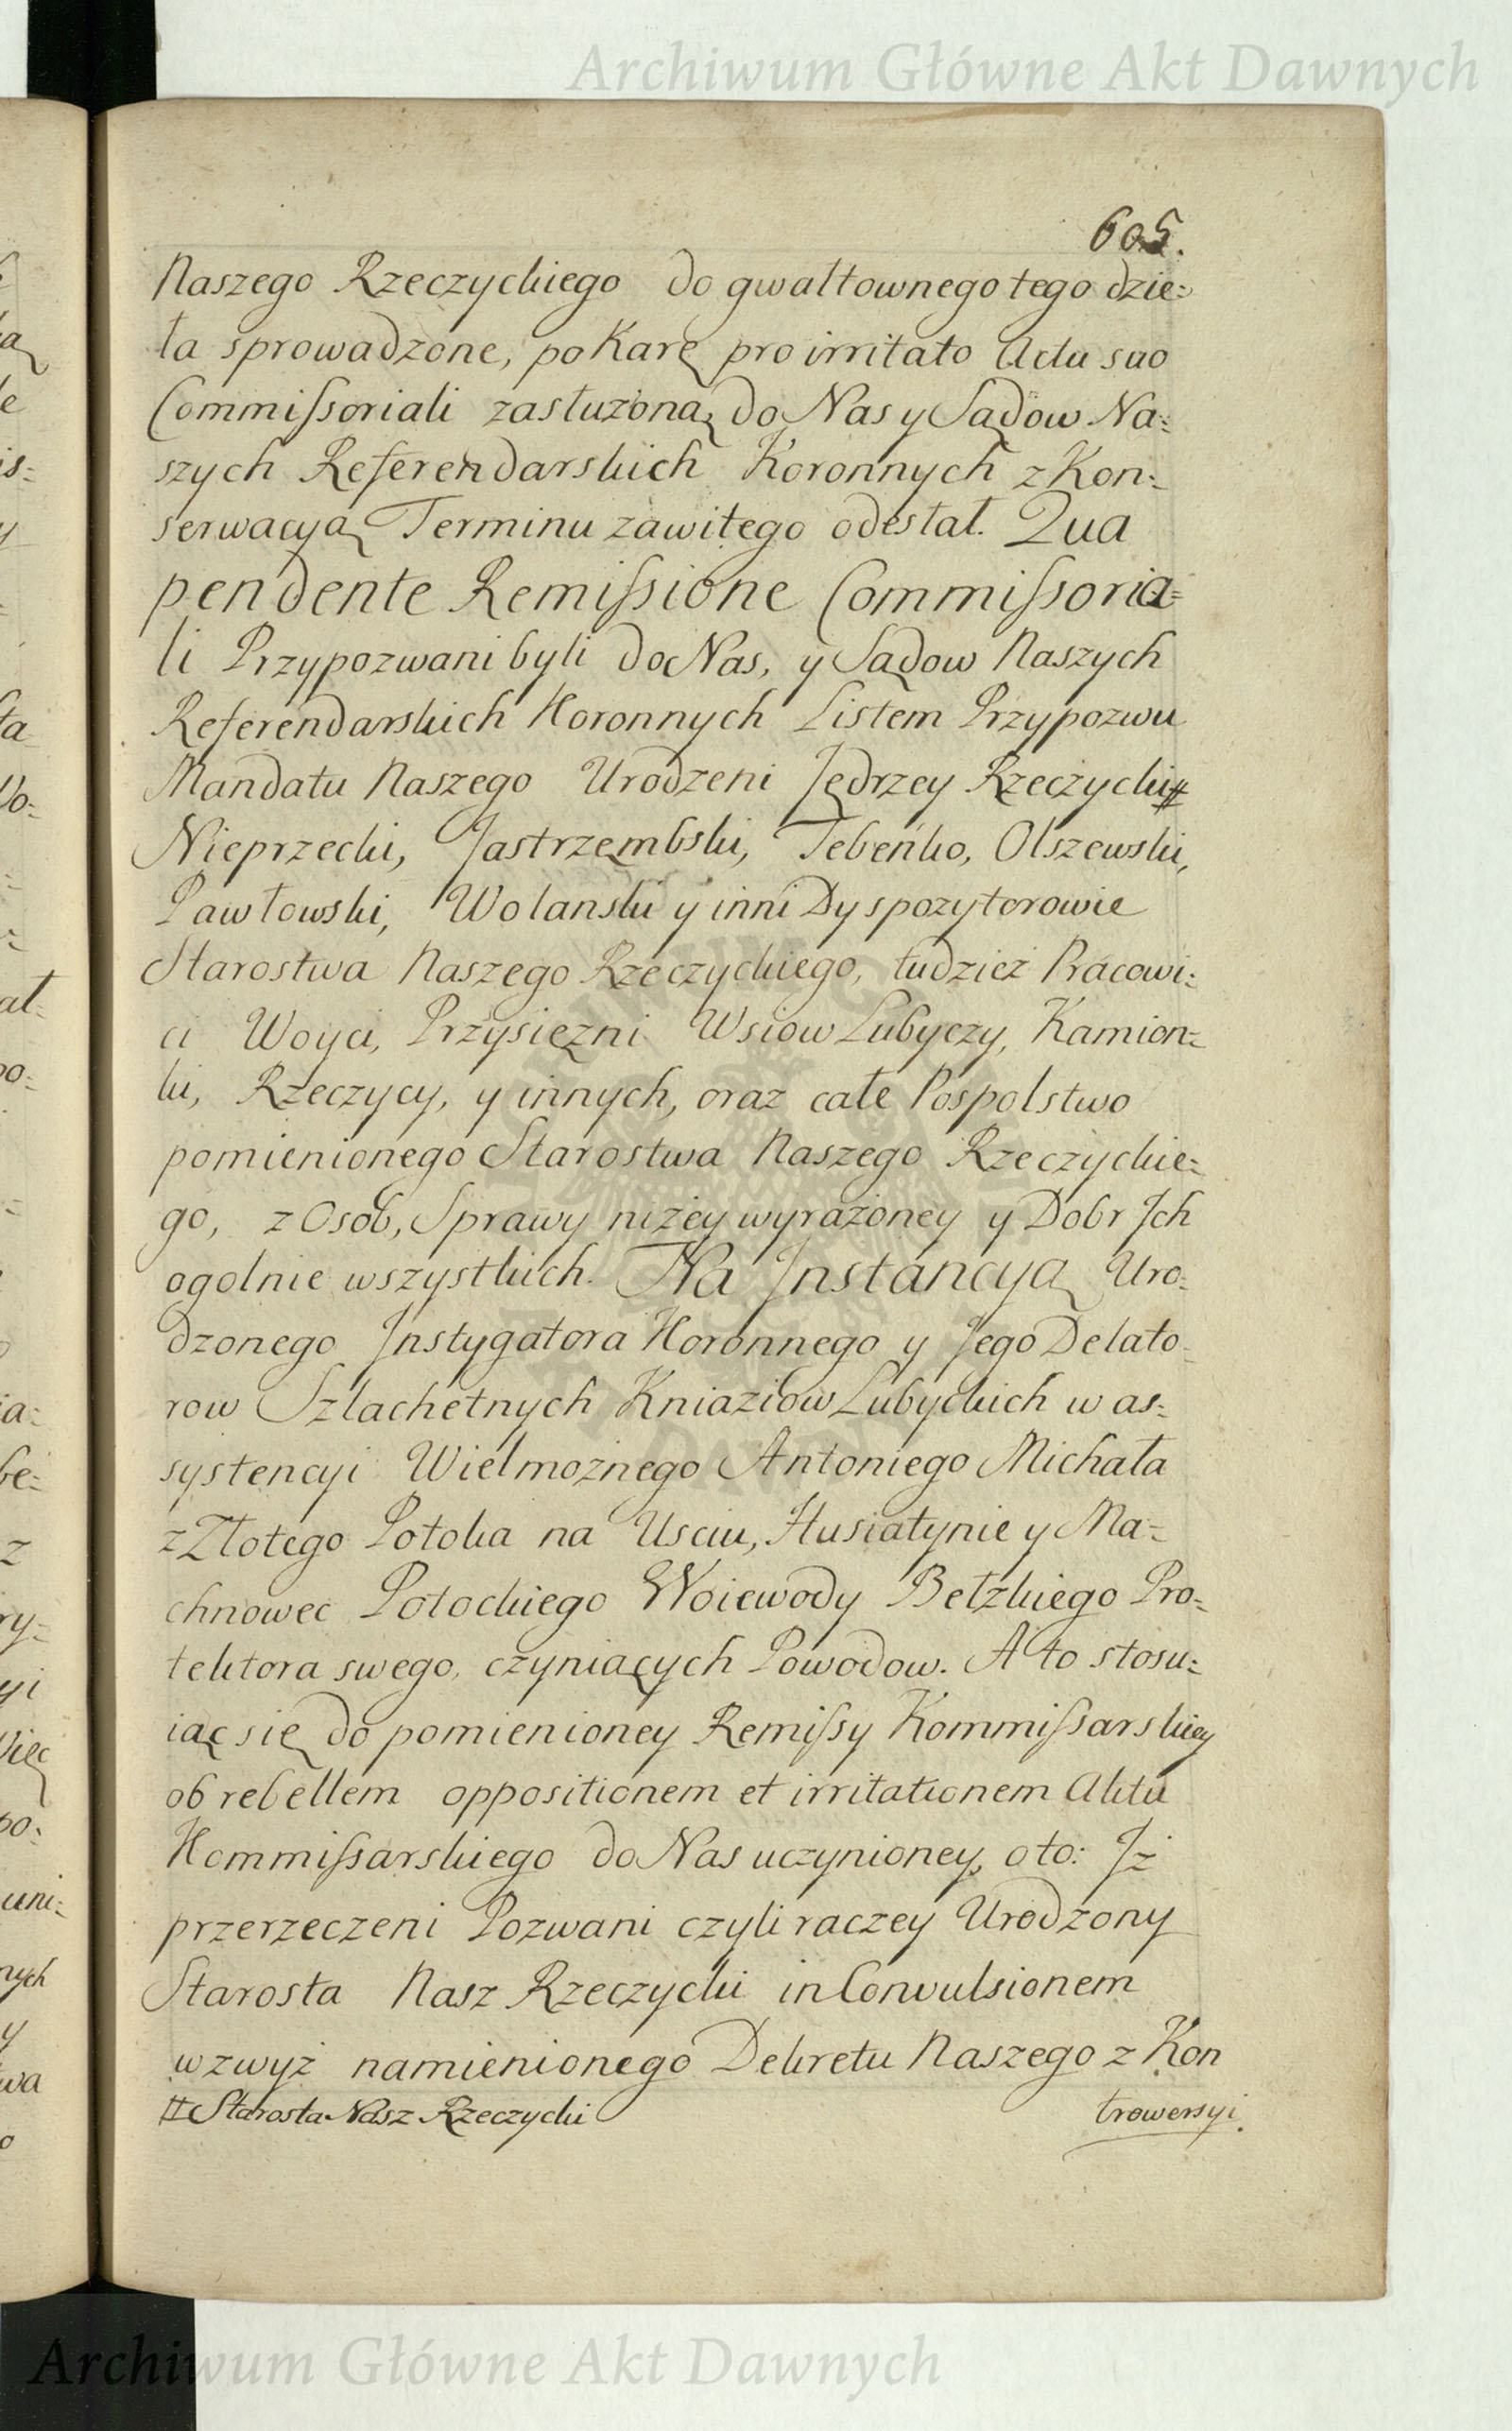 Archiwum Główne Akt Dawnych
605.
Naszego Rzeczyckiego do gwałtownego tego dzie=
ła sprowadzone, po Karę pro irritato Actu suo
Commißoriali zasłużoną do Nas y Sądow Na=
szych Referendarskich Koronnych z Kon=
serwacyą Terminu zawitego odesłał. Qua
pendente Remißione Commißoria=
li Przypozwani byli do Nas, y Sądow Naszych
Referendarskich Koronnych Listem Przypozwu
Mandatu Naszego Urodzeni Jędrzey Rzeczycki #
Nieprzecki, Jastrzębski, Tebeńko, Olszewski,
Pawłowski, Wolanski y inni Dyspozytorowie
Starostwa Naszego Rzeczyckiego, tudzież Pracowi=
ci Woyci, Przysiężni Wsiow Lubyczy, Kamion=
ki, Rzeczycy, y innych, oraz całe Pospolstwo
pomienionego Starostwa Naszego Rzeczyckie=
go, z Osob, Sprawy niżey wyrażoney y Dobr Jch
ogolnie wszystkich. Na Jnstancyą Uro=
dzonego Jnstygatora Koronnego y Jego Delato=
row Szlachetnych Kniaziow Lubyckich w as=
systencyi Wielmożnego Antoniego Michała
z Złotego Potoka na Usciu, Husiatynie y Ma=
chnowec Potockiego Woiewody Bełzkiego Pro=
tektora swego, czyniących Powodow. A to stosu=
iąc się do pomienioney Remißy Kommißarskiey
ob rebellem oppositionem et irritationem Aktu
Kommißarskiego do Nas uczynioney, o to: Jż
przerzeczeni Pozwani czyli raczey Urodzony
Starosta Nasz Rzeczycki in Convulsionem
wzwyż namienionego Dekretu Naszego z Kon
# Starosta Nasz Rzeczycki
trowersyi.
Archiwum Główne Akt Dawnych